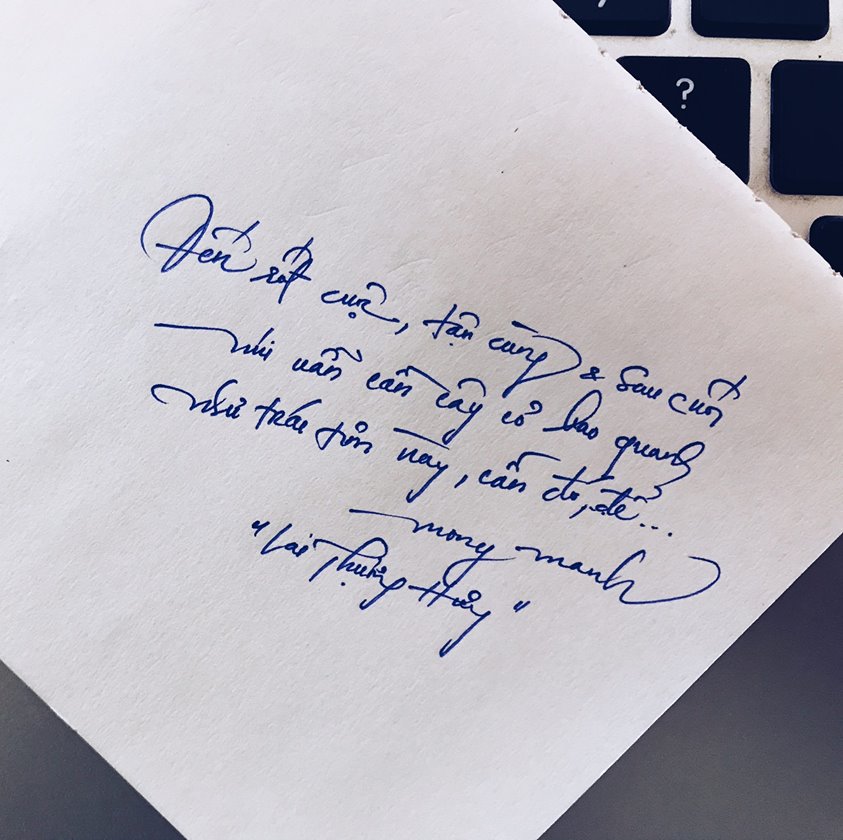 ?
Đến rốt cuộc, tận cùng & sau cuối
vẫn cần cây cỏ bao quanh
như trái tim này, cần đó, để...
mong manh
"Lai Thượng Hưng"